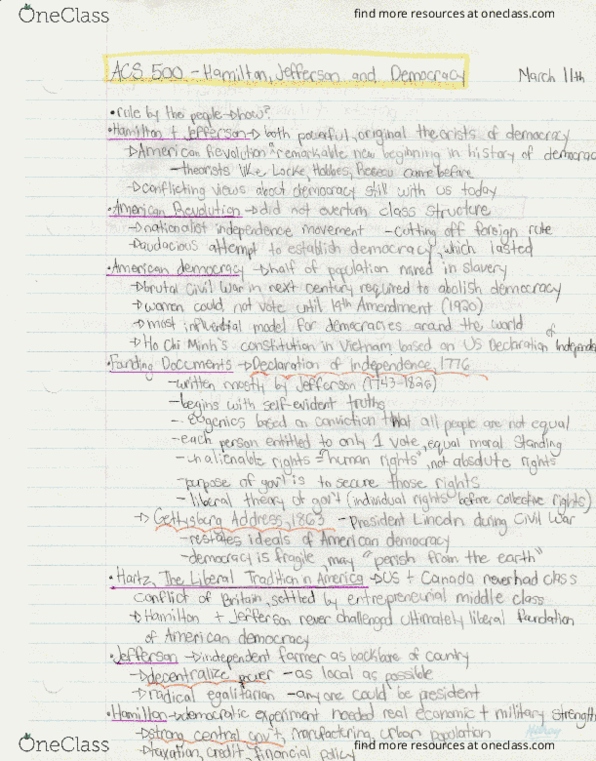 OneClass
find more resources at oneclass.com
ACS 500 - Hamilton, Jefferson and Democracy March 11th
• rule by the people → how?
• Hamilton + Jefferson → both powerful, original theorists of democracy
→ American Revolution "remarkable new beginning in history of democrac
- theorists like Locke, Hobbes, come before
→ conflicting views about democracy still with us today
• American Revolution → did not overturn class structure
→ nationalist independence movement - cutting off foreign rule
→ audacious attempt to establish democracy, which lasted
• American democracy → half of population mared in slavery
→ brutal Civil War in next century required to abolish democracy
→ women could not vote until 19th Amendment (1920)
→ most influential model for democracies around the world
→ Ho Chi Minh's constitution in Vietnam based on US Declaration of Independe
• Founding Documents → Declaration of Independence, 1776
- written mostly by Jefferson (1743-1826)
- begins with self-evident truths
- eugenics based on conviction that all people are not equal
- each person entitled to only 1 vote, equal moral standing
- unalienable rights = "human rights", not absolute rights
- purpose of gov't is to secure those rights
- liberal theory of gov't (individual rights before collective rights)
→ Gettysburg Address, 1863 - President Lincoln during Civil War
- restates ideals of American democracy
- democracy is fragile, may "perish from the earth"
• Hartz, The Liberal Tradition in America → US + Canada never had class
conflict of Britain, settled by entrepreneurial middle class
→ Hamilton + Jefferson never challenged ultimately liberal foundation
of American democracy
• Jefferson → independent farmer as backbone of country
→ decentralize power - as local as possible
→ radical egalitarian - anyone could be president
• Hamilton → democratic experiment needed real economic + military strength
→ strong central gov't, manufacturing, urban population
→ taxation, credit, financial policy
OneClass
find more resources at oneclass.com